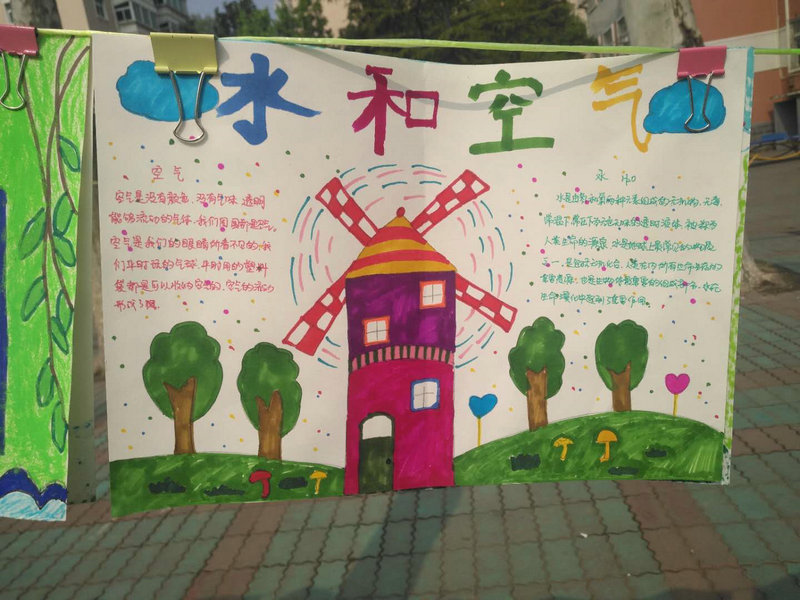 水和空气
空气
空气是没有颜色、没有气味、透明
能够流动的气体，我们周围都是空气。
空气是我们的眼睛所看不见的，我
们平时玩的气球，平时用的塑料
袋都是可以收的空气的，空气的流动
形成了风。
水
水是由氢和氧两种元素组成的无机物，无毒，
常温下常压下为无色无味的透明液体，被称为
人类生命的源泉，水是地球上最常见的物质
之一，是包括 人类在内所有生命生存的
重要资源，也是生物体最重要的组成部分，水在
生命演化中起到了重要作用。